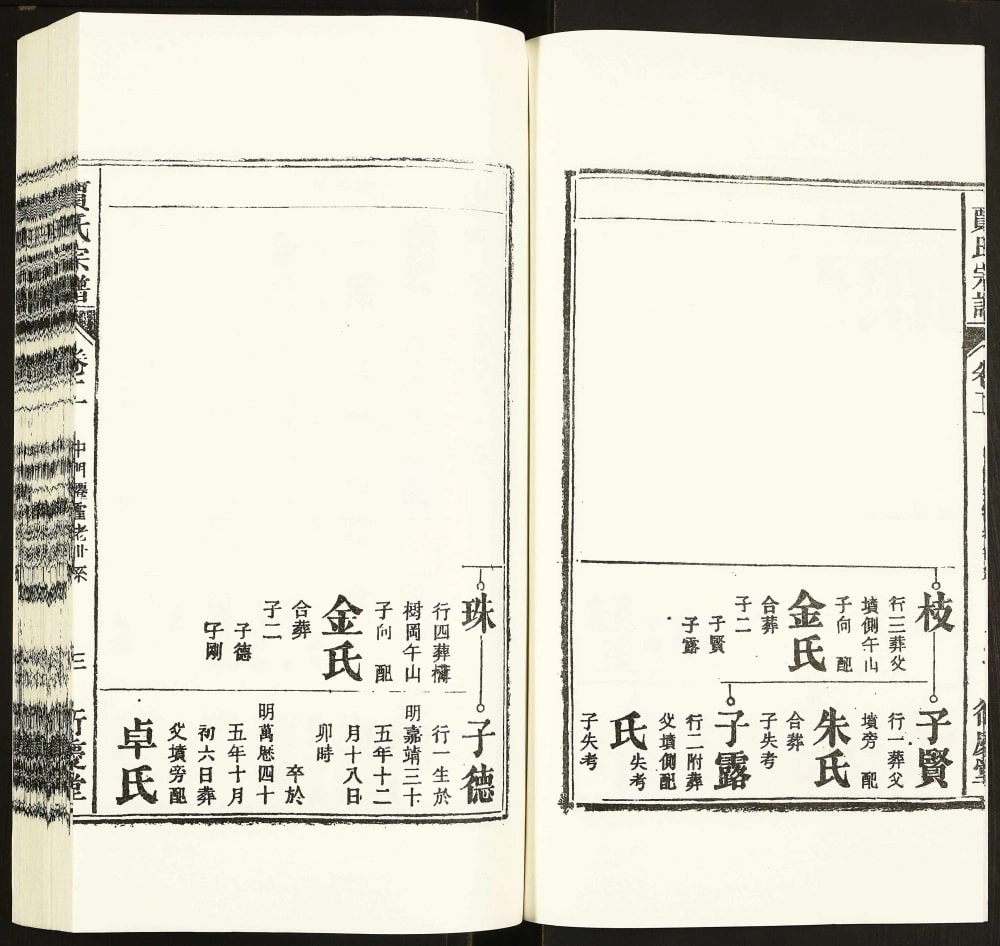 賈氏宗譜
卷二
枝
行三葬父
墳側午山
子向 配
金氏
合葬
子二
子賢
子露
子賢
行一葬父
墳旁 配
朱氏
合葬
子失考
子露
行二附葬
父墳側配
氏
失考
子失考
珠
行四葬
树岡午山
子向 配
金氏
合葬
子二
子德
子剛
子德
行一生於
明嘉靖三十
五年十二
月十八日
卯時
卒於
明萬厯四十
五年十月
初六日葬
父墳旁配
卓氏
賈氏宗譜
卷二
三
衍慶堂